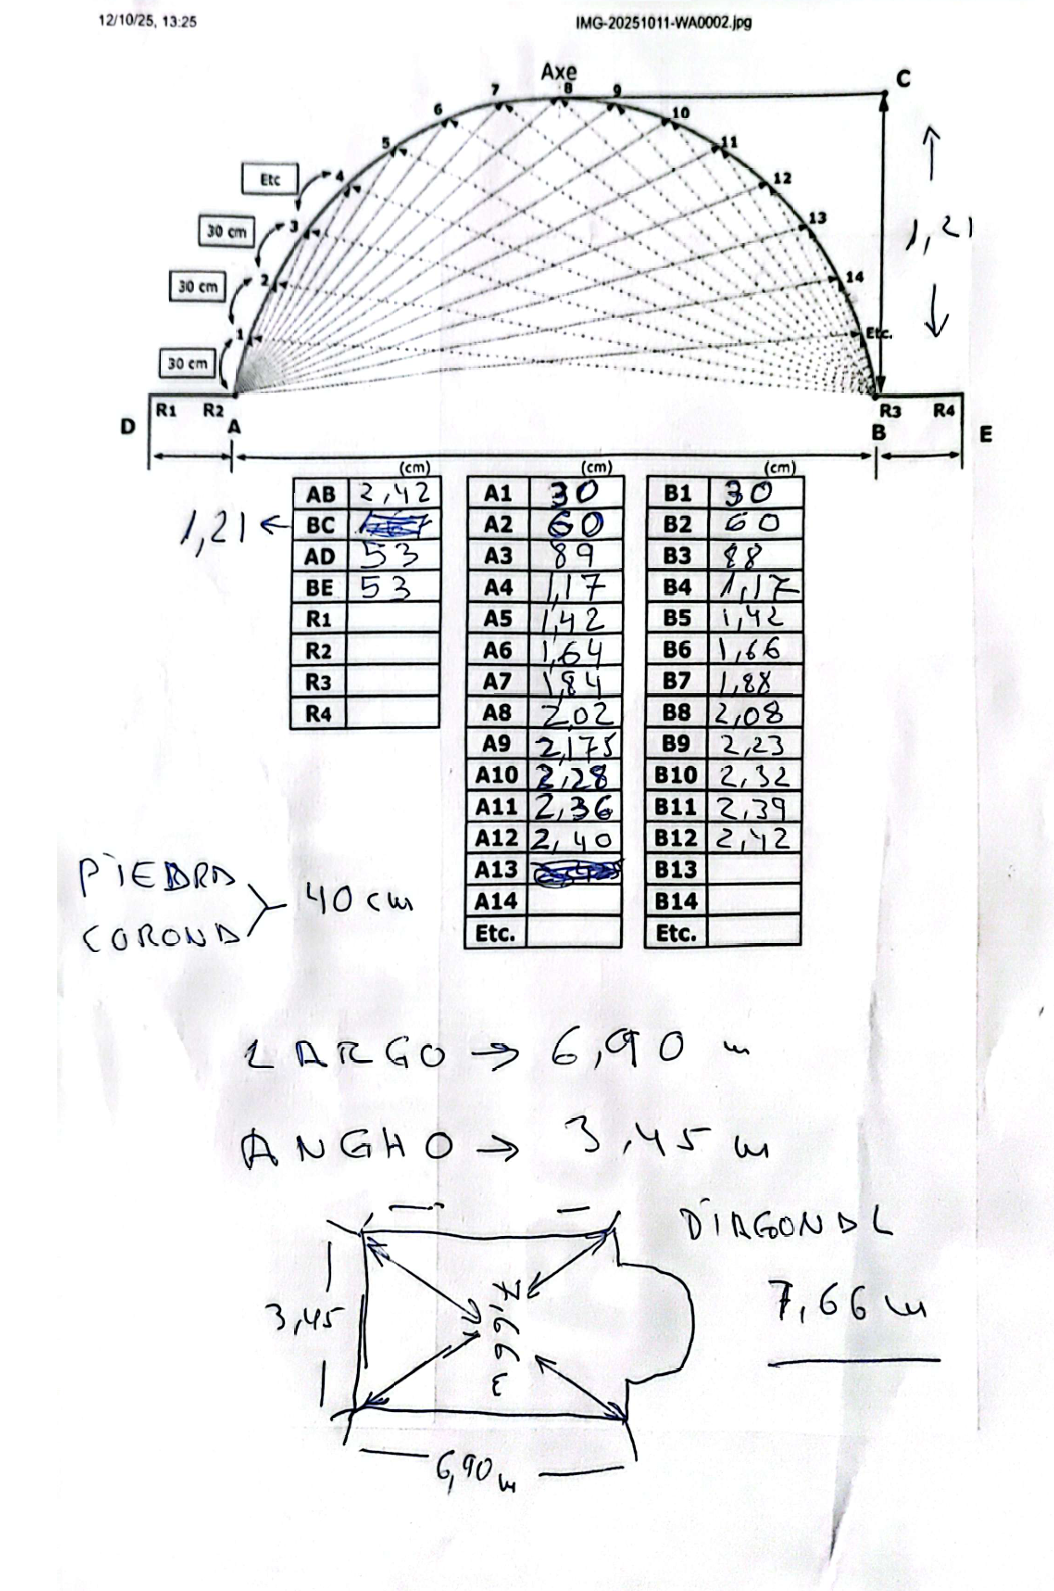 12/10/25, 13:25 IMG-20251011-WA0002.jpg
Axe
C
7 8 9
6 10
5 11
Etc 4 12
30 cm 3 13
1,21
30 cm 2 14
1 Etc.
30 cm
D R1 R2 A R3 R4 B E
(cm) (cm) (cm)
AB 2,42 A1 30 B1 30
1,21 ← BC A2 60 B2 60
AD 53 A3 89 B3 88
BE 53 A4 1,17 B4 1,17
R1 A5 1,42 B5 1,42
R2 A6 1,64 B6 1,66
R3 A7 1,84 B7 1,88
R4 A8 2,02 B8 2,08
A9 2,175 B9 2,23
A10 2,28 B10 2,32
A11 2,36 B11 2,39
A12 2,40 B12 2,42
A13 B13
A14 B14
Etc. Etc.
PIEDRA
CORONA
40 cm
LARGO → 6,90 m
ANGHO → 3,45 m
DIAGONAL
7,66 m
3,45
7,66 m
6,90 m